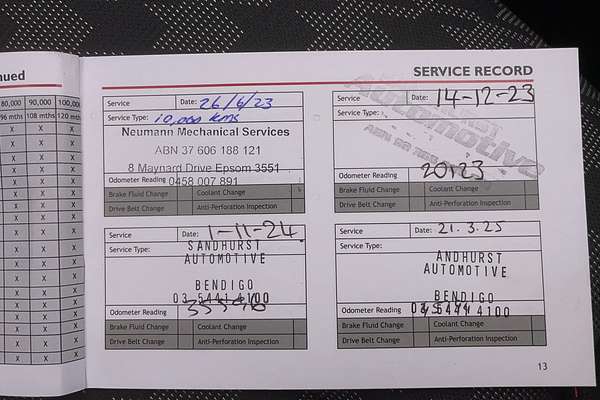 nued
80,000 90,000 100,000
96 mths 108 mths 120 mths
SERVICE RECORD
Service Date: 26/6/23
Service Type: 10,000 kms
Neumann Mechanical Services
ABN 37 606 188 121
8 Maynard Drive Epsom 3551
Odometer Reading 0458 007 891
Brake Fluid Change Coolant Change
Drive Belt Change Anti-Perforation Inspection
Service Date: 14-12-23
Service Type:
Automotive
Odometer Reading 20123
Brake Fluid Change Coolant Change
Drive Belt Change Anti-Perforation Inspection
Service Date: 1-11-24
Service Type: SANDHURST
AUTOMOTIVE
BENDIGO
03 5441 4100
Odometer Reading
Brake Fluid Change Coolant Change
Drive Belt Change Anti-Perforation Inspection
Service Date: 21.3.25
Service Type: ANDHURST
AUTOMOTIVE
BENDIGO
Odometer Reading
Brake Fluid Change Coolant Change
Drive Belt Change Anti-Perforation Inspection
13